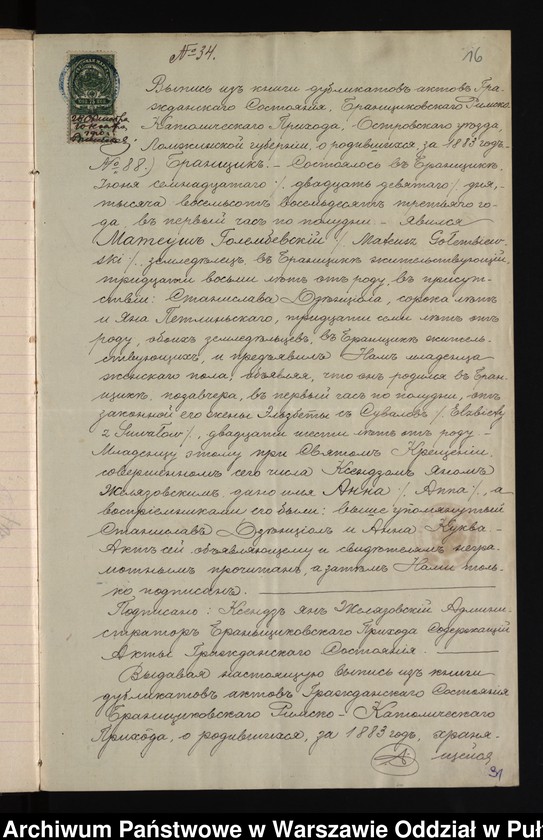 № 34.
16
Выпись изъ книги дубликатовъ актовъ Гра-
жданскаго Состоянія, Браньщиковскаго Римско-
Католическаго Прихода, Островскаго уѣзда,
Ломжинской губерніи, о родившихся, за 1883 годъ.
№ 88.) Браньщик. – Состоялось въ Браньщикѣ,
Іюня семнадцатаго /, двадцать девятаго / дня,
тысяча восемьсотъ восемьдесятъ третьяго го-
да, въ первый часъ по полудни. – Явился
Матеушъ Голембевскій /, Mateusz Gołembiew-
ski /, земледѣлецъ, въ Браньщикѣ жительствующій,
тридцати восьми лѣтъ отъ роду, въ присут-
ствіи: Станислава, сорока лѣтъ
и Яна Петлиньскаго, тридцати семи лѣтъ отъ
роду, обоихъ земледѣльцевъ, въ Браньщикѣ житель-
ствующихъ, и предъявилъ Намъ младенца
женскаго пола, объявляя, что онъ родился въ Бран-
щикѣ, позавчера, въ первый часъ по полудни, отъ
законной его жены Эльзбеты съ Суваловъ /, Elzbiety
z Suwałow /, двадцати шести лѣтъ отъ роду. –
Младенцу этому при Святомъ Крещеніи,
совершенномъ сего числа Ксендзомъ Яномъ
Желязовскимъ, дано имя Анна /, Anna /, а
воспріемниками его были: выше упомянутый
Станиславъ и Анна Куква. –
Актъ сей объявляющему и свидѣтелямъ негра-
мотнымъ прочитанъ, а затѣмъ Нами толь-
ко подписанъ.
Подписано: Ксендзъ Янъ Желязовскій Админи-
страторъ Браньщиковскаго Прихода Содержащій
Акты Гражданскаго Состоянія.
Выдавая настоящую выпись изъ книги
дубликатовъ актовъ Гражданскаго Состоянія
Браньщиковскаго Римско-Католическаго
Прихода, о родившихся, за 1883 годъ, храня-
щейся
31
Archiwum Państwowe w Warszawie Oddział w Puł